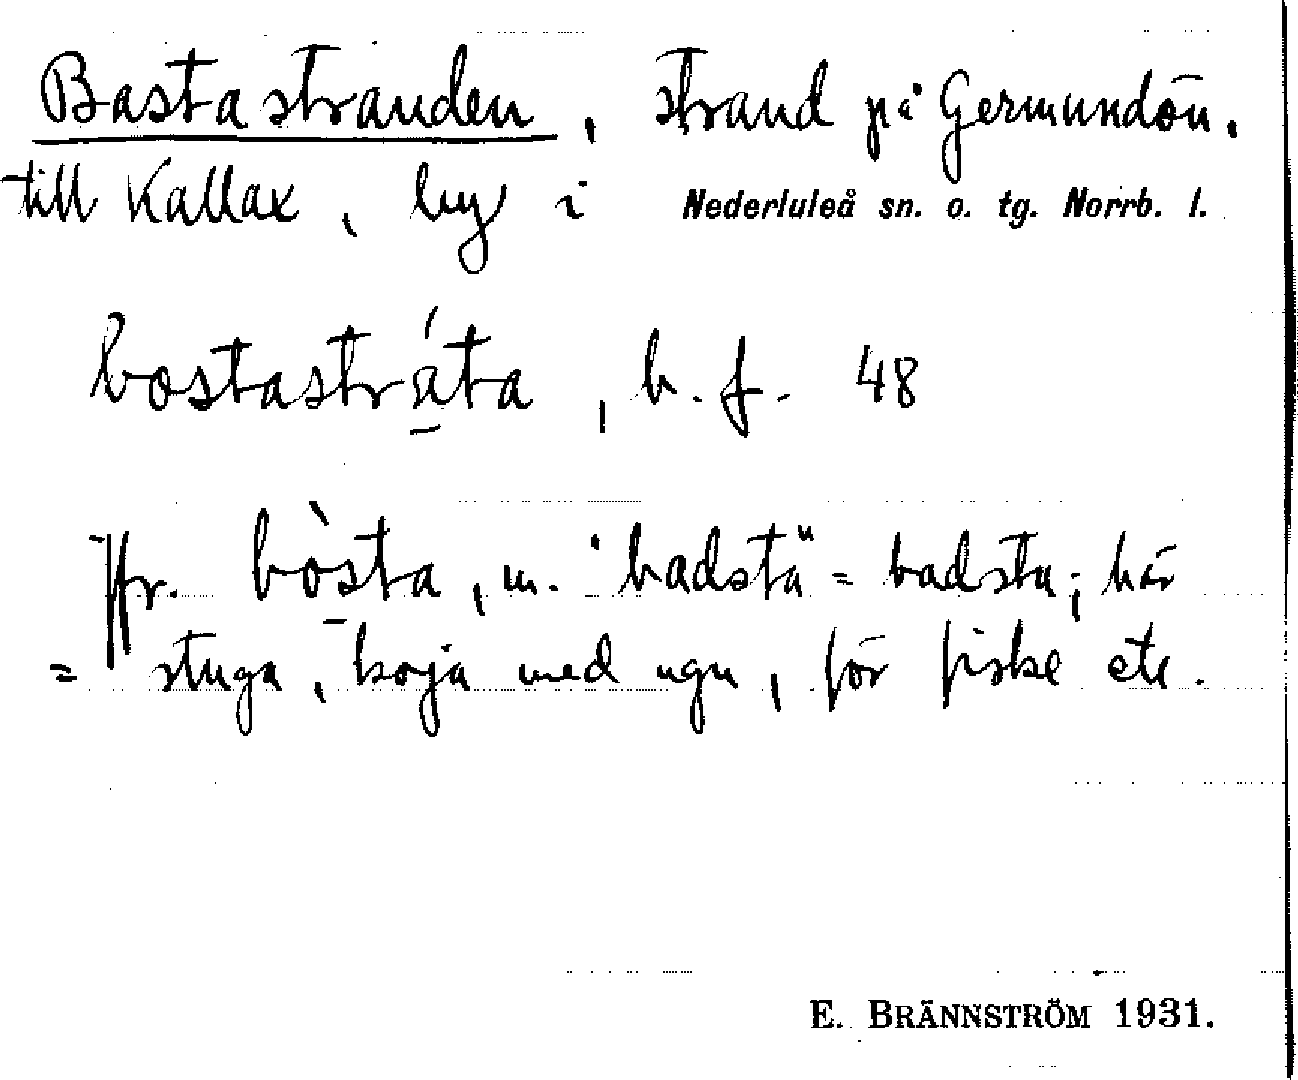 Bastastranden, strand på Germundön.
till Kallax, by i Nederluleå sn. o. tg. Norrb. l.
bostastráta, b. f. 48
Jfr. bòsta, m. "badsta" = badstu; här
= stuga, koja med ugn, för fiske etc.
E. BRÄNNSTRÖM 1931.